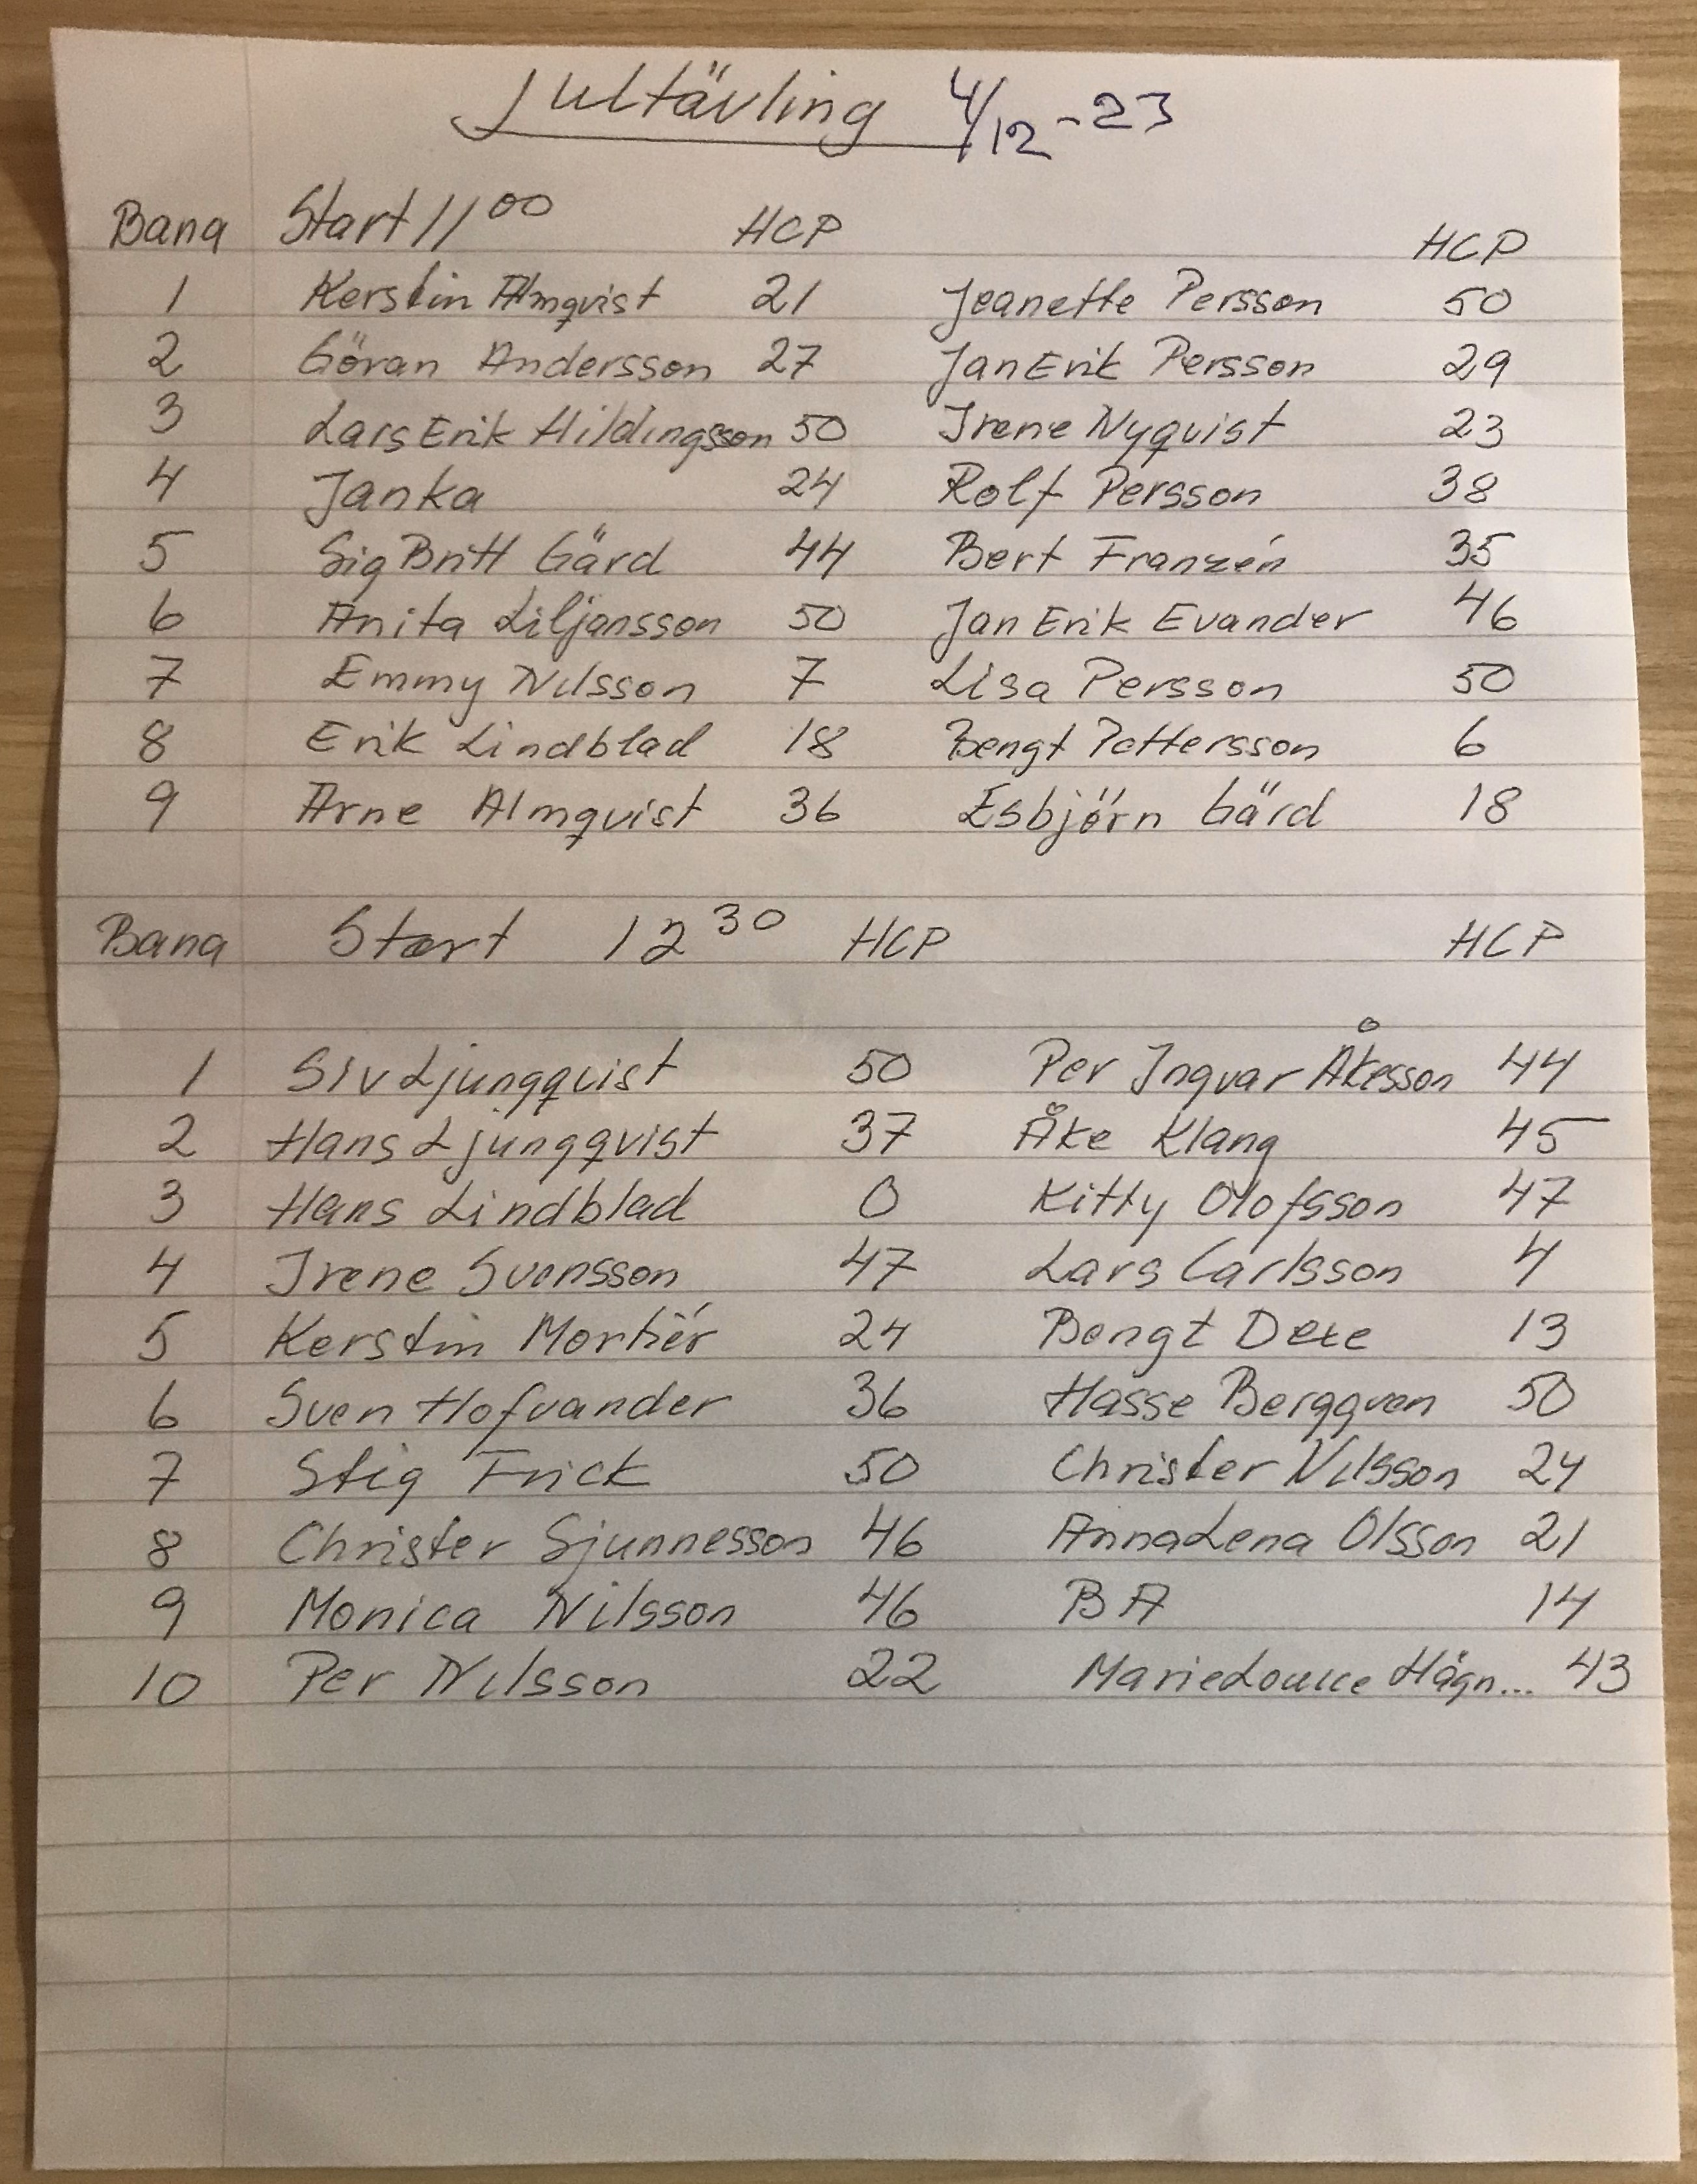 Jultävling 4/12-23
Bana Start 11 00 HCP HCP
1 Kerstin Almqvist 21 Jeanette Persson 50
2 Göran Andersson 27 JanErik Persson 29
3 Lars Erik Hildingsson 50 Irene Nyquist 23
4 Janka 24 Rolf Persson 38
5 SigBritt Gärd 44 Bert Franzén 35
6 Anita Liljansson 50 Jan Erik Evander 46
7 Emmy Nilsson 7 Lisa Persson 50
8 Erik Lindblad 18 Bengt Pettersson 6
9 Arne Almqvist 36 Esbjörn Gärd 18
Bana Start 12 30 HCP HCP
1 Siv Ljungqvist 50 Per Ingvar Åkesson 44
2 Hans Ljungqvist 37 Åke Klang 45
3 Hans Lindblad 0 Kitty Olofsson 47
4 Irene Svensson 47 Lars Carlsson 4
5 Kerstin Mortiér 24 Bengt 13
6 Sven Hofvander 36 Hasse Berggven 50
7 Stig Frick 50 Christer Nilsson 24
8 Christer Sjunnesson 46 AnnaLena Olsson 21
9 Monica Nilsson 46 BA 14
10 Per Nilsson 22 Hågn... 43